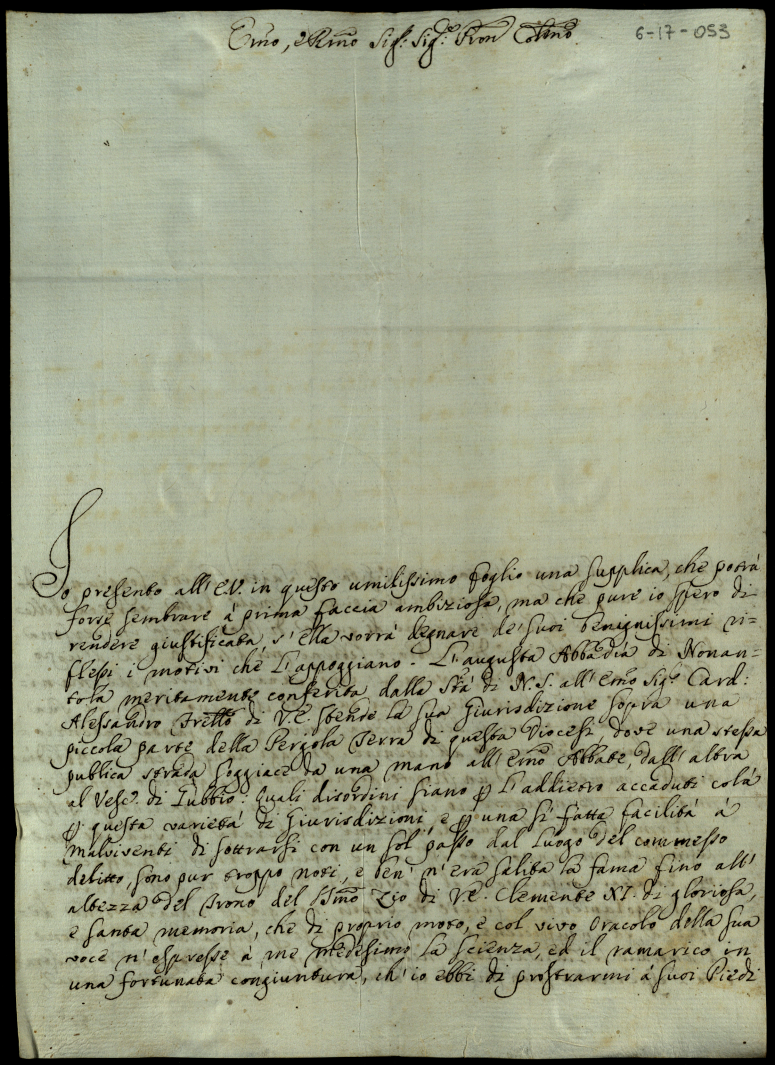 Emo, e Rmo Sig.r Sig.r Pron Colmo
6-17-053
Io presento all'E.V. in questo umilissimo foglio una supplica, che potrà
forse sembrare à prima faccia ambiziosa, ma che pure io spero di
rendere giustificata, s'ella vorrà degnare de' suoi benignissimi ri=
flessi i motivi che l'appoggiano. L'augusta Abbadia di Nonan=
tola meritamente conferita dalla Stà di N.S. all'Emo Sig.r Card:
Alessandro Frello di V.E. stende la sua Giurisdizione sopra una
piccola parte della Pergola Terra di questa Diocesi, dove una stessa
publica strada soggiace da una mano all'Emo Abbate, dall'altra
al Vesc.o di Gubbio: Quali disordini siano p l'addietro accaduti colà
p questa varietà di Giurisdizioni, e p una sì fatta facilità à
malviventi di sottrarsi con un sol passo dal luogo del commesso
delitto, sono pur troppo noti, e ben n'era salita la fama fino all'
altezza del Trono del SSmo Zio di V.E. Clemente XI. di gloriosa,
e santa memoria, che di proprio moto, e col vivo Oracolo della sua
voce n'espresse à me medesimo la scienza, ed il ramarico in
una fortunata congiuntura, ch'io ebbi di prostrarmi à suoi Piedi